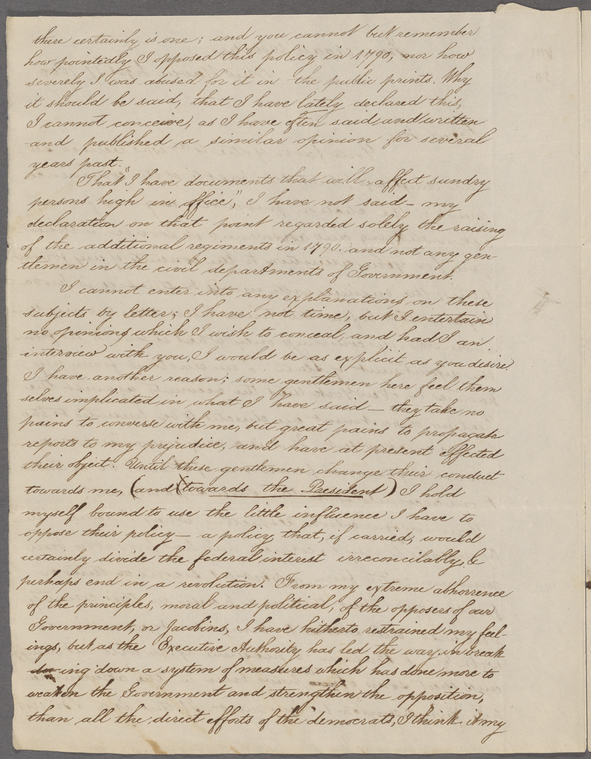 there certainly is one; and you cannot but remember
how pointedly I opposed this policy in 1790, nor how
severely I was abused for it in the public prints. Why
it should be said, that I have lately declared this,
I cannot conceive, as I have often said and written
and published a similar opinion for several
years past.
That "I have documents that will affect sundry
persons high in office", I have not said — my
declaration on that point regarded solely the raising
of the additional regiments in 1790. and not any gen
tlemen in the civil departments of Government.
I cannot enter into any explanations on these
subjects by letter; I have not time, but I entertain
no opinions which I wish to conceal, and had I an
interview with you, I would be as explicit as you desire.
I have another reason; some gentlemen here feel them
selves implicated in what I have said — they take no
pains to converse with me, but great pains to propagate
reports to my prejudice, and have at present effected
their object. Until these gentlemen change their conduct
towards me, (and (towards the President) I hold
myself bound to use the little influence I have to
oppose their policy — a policy that, if carried, would
certainly divide the federal interest irreconcilably, &
perhaps end in a revolution. From my extreme abhorrence
of the principles, moral and political, of the opposers of our
Government, or Jacobins, I have hitherto restrained my feel-
ings, but as the Executive Authority has led the way, in break
ing down a system of measures which has done more to
weaken the Government and strengthen the opposition,
than all the direct efforts of the democrats, I think it my